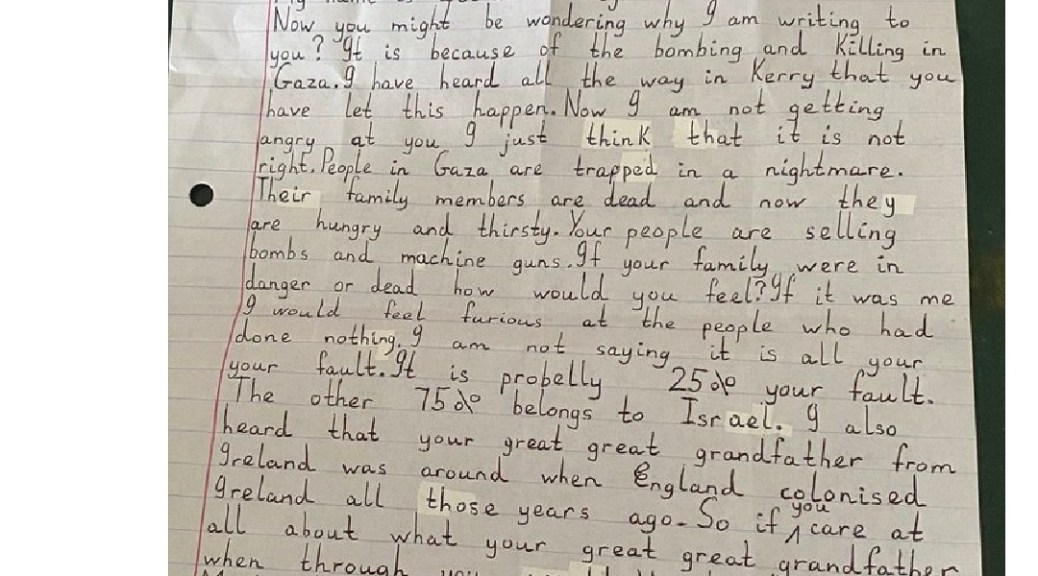 Now you might be wondering why I am writing to
you? It is because of the bombing and killing in
Gaza. I have heard all the way in Kerry that you
have let this happen. Now I am not getting
angry at you I just think that it is not
right. People in Gaza are trapped in a nightmare.
Their family members are dead and now they
are hungry and thirsty. Your people are selling
bombs and machine guns. If your family were in
danger or dead how would you feel? If it was me
I would feel furious at the people who had
done nothing. I am not saying it is all your
your fault. It is probelly 25% your fault.
The other 75% belongs to Israel. I also
heard that your great great grandfather from
Ireland was around when England colonised
Ireland all those years ago. So if you care at
all about what your great great grandfather
when through